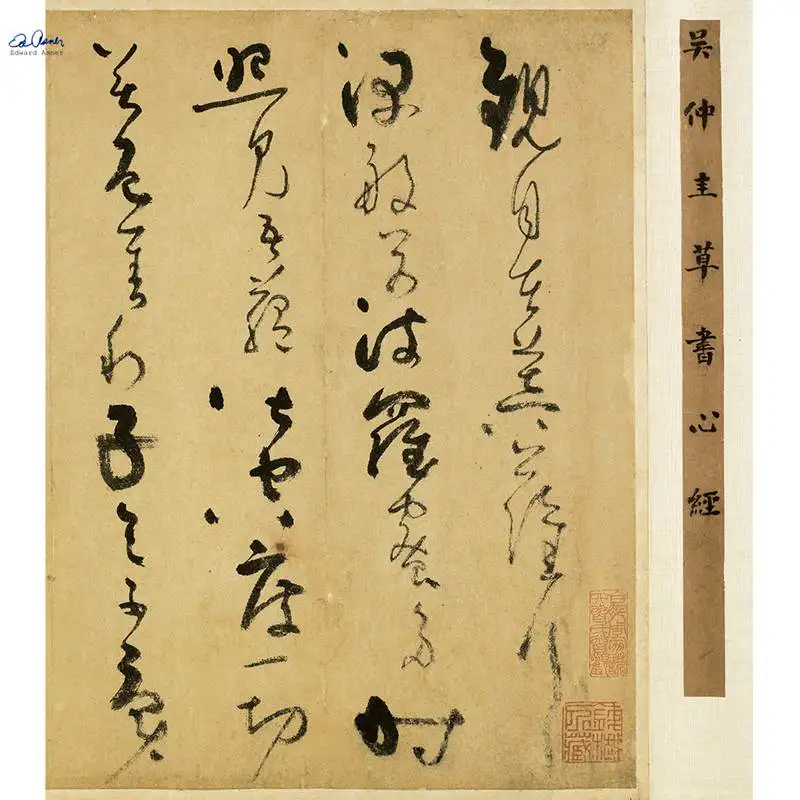 Edward Asner
吳仲圭草書心經
觀自在菩薩行
深般若波羅蜜多時
照見五蘊皆空度一切
苦厄舍利子色不異空